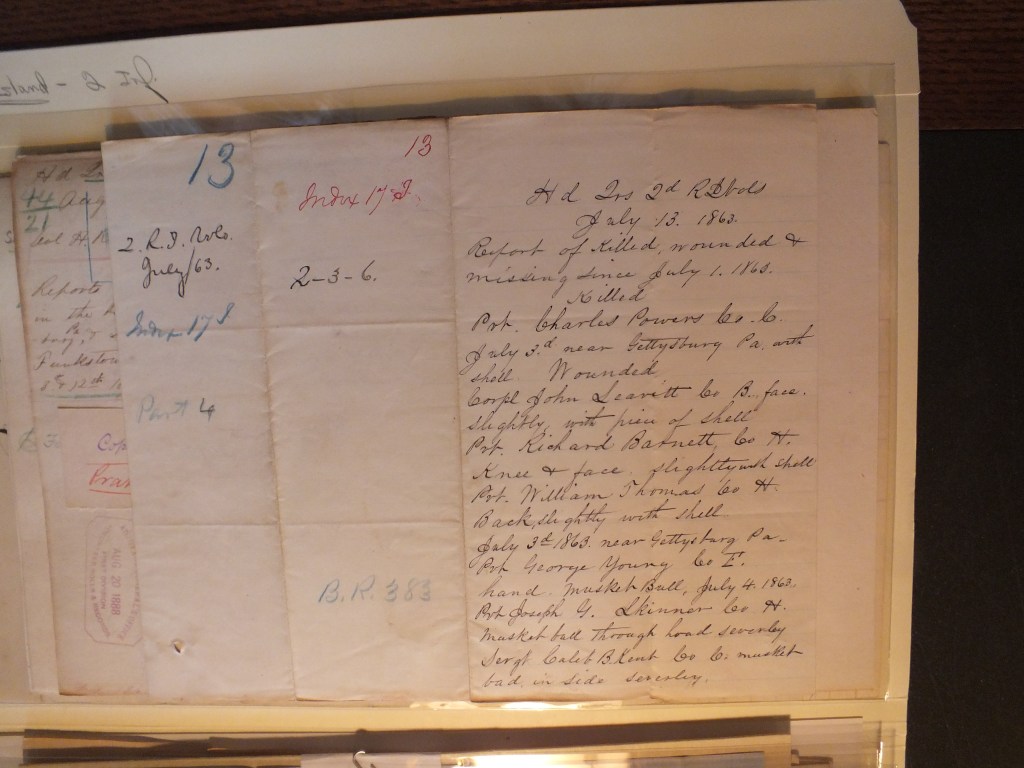 44 Aug
21
Reports
in the
Funkstow
8th 12th
Cop
AUG 20 1888
13
2. R.I. Vols.
July/63.
Index 17 I
Part 4
13
Index 17 I.
2-3-6.
B.R. 383
Hd Qrs 2d R I Vols
July 13. 1863.
Report of Killed, wounded &
missing since July 1. 1863.
Killed
Prt. Charles Powers Co. C.
July 3.d near Gettysburg Pa. with
shell. Wounded
Corpl John Leavitt Co B. face.
slightly, with piece of shell
Prt. Richard Barnett Co H.
Knee & face. slightly with shell
Prt. William Thomas Co H.
Back, slightly with shell
July 3d 1863. near Gettysburg Pa-
Prt George Young Co I.
hand. Musket Ball, July 4. 1863.
Prt Joseph G. Skinner Co H.
Musket ball through head severley
Sergt Caleb B. Kent Co C. musket
bad in side severley.